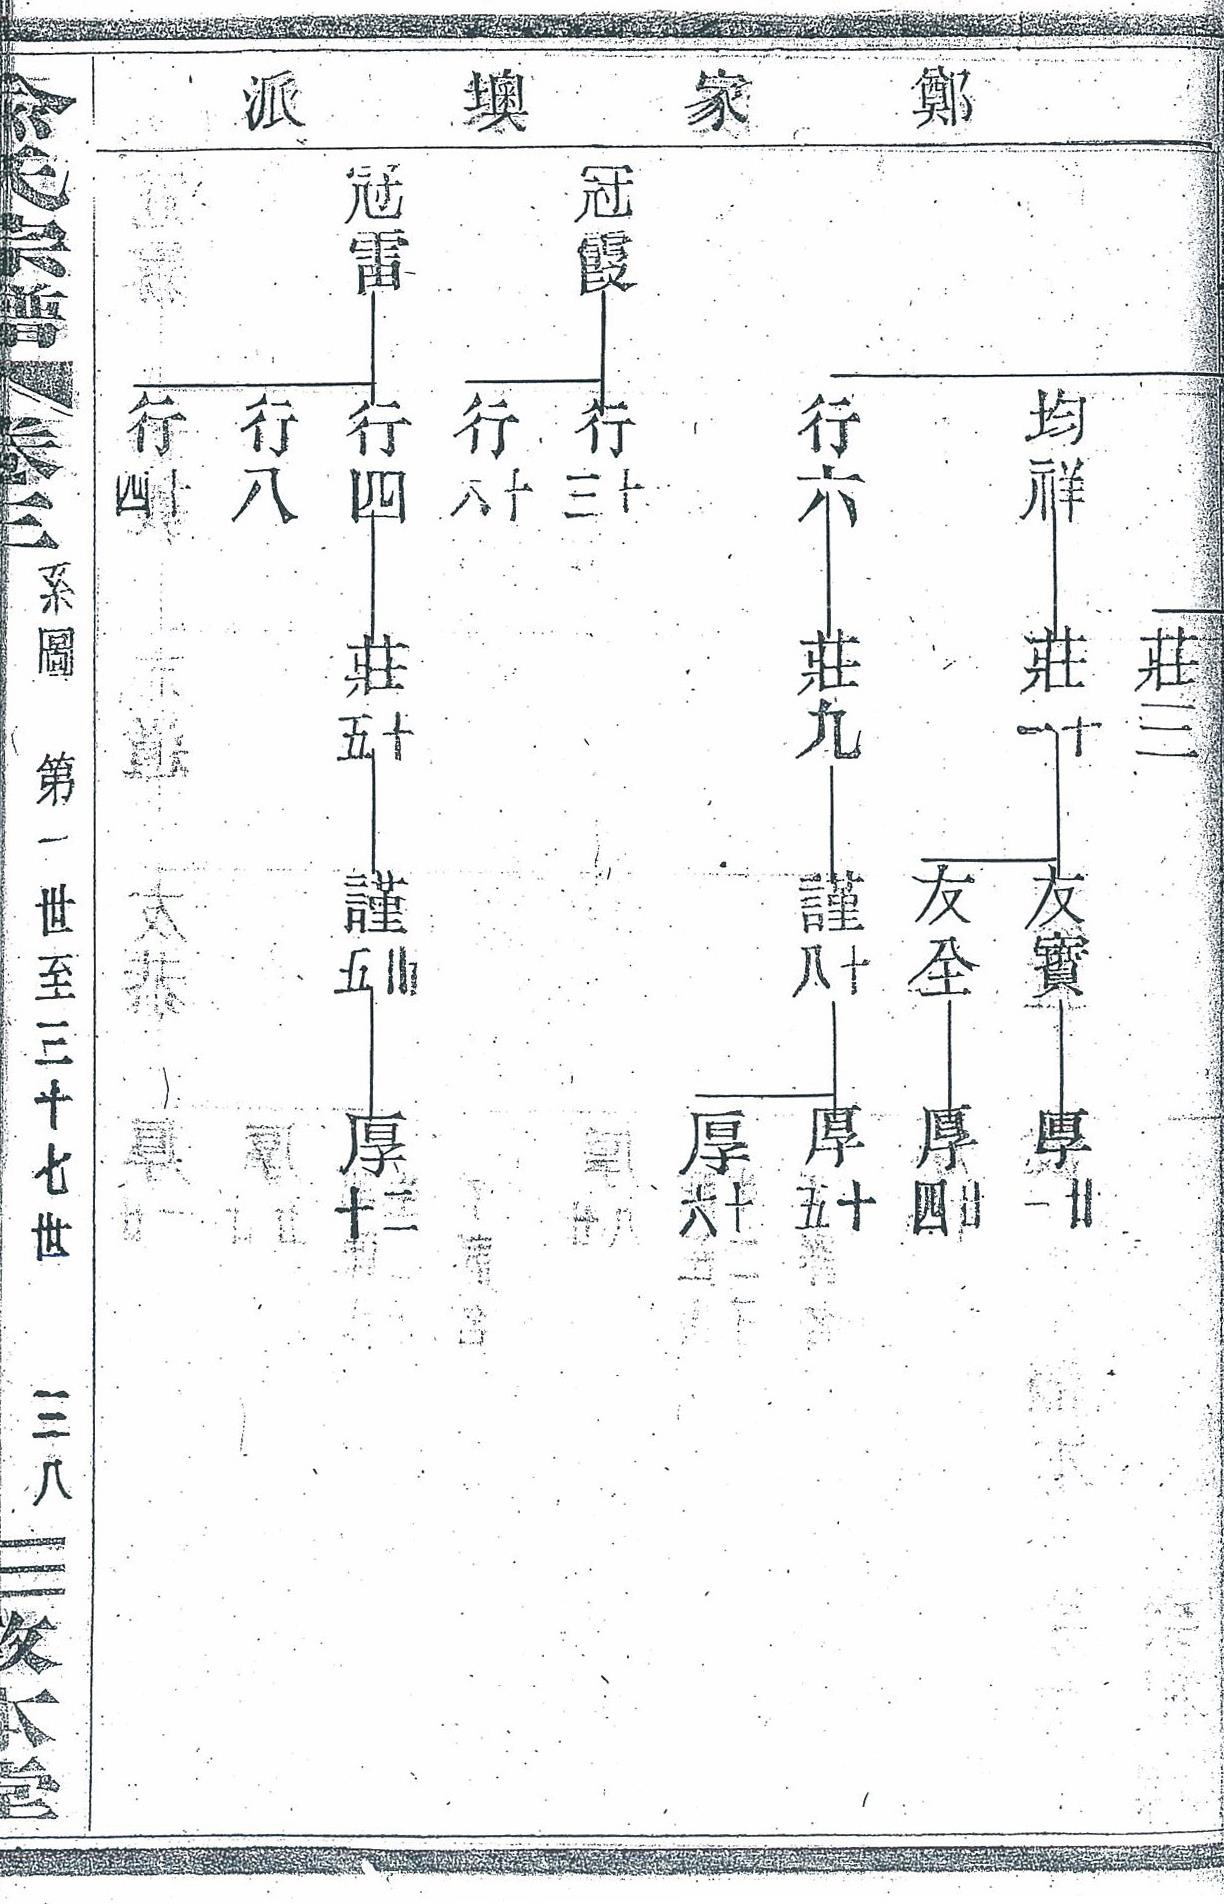 鄭家墺派
莊三
均祥
莊十一
友寶
厚廿一
友全
厚廿四
行六
莊九
謹十八
厚十五
厚十六
冠霞
行十三
行十八
冠雷
行四
莊十五
謹卌五
厚二十
行八
行十四
俞氏宗譜
卷三
系圖
第一世至三十七世
三八
敦本堂